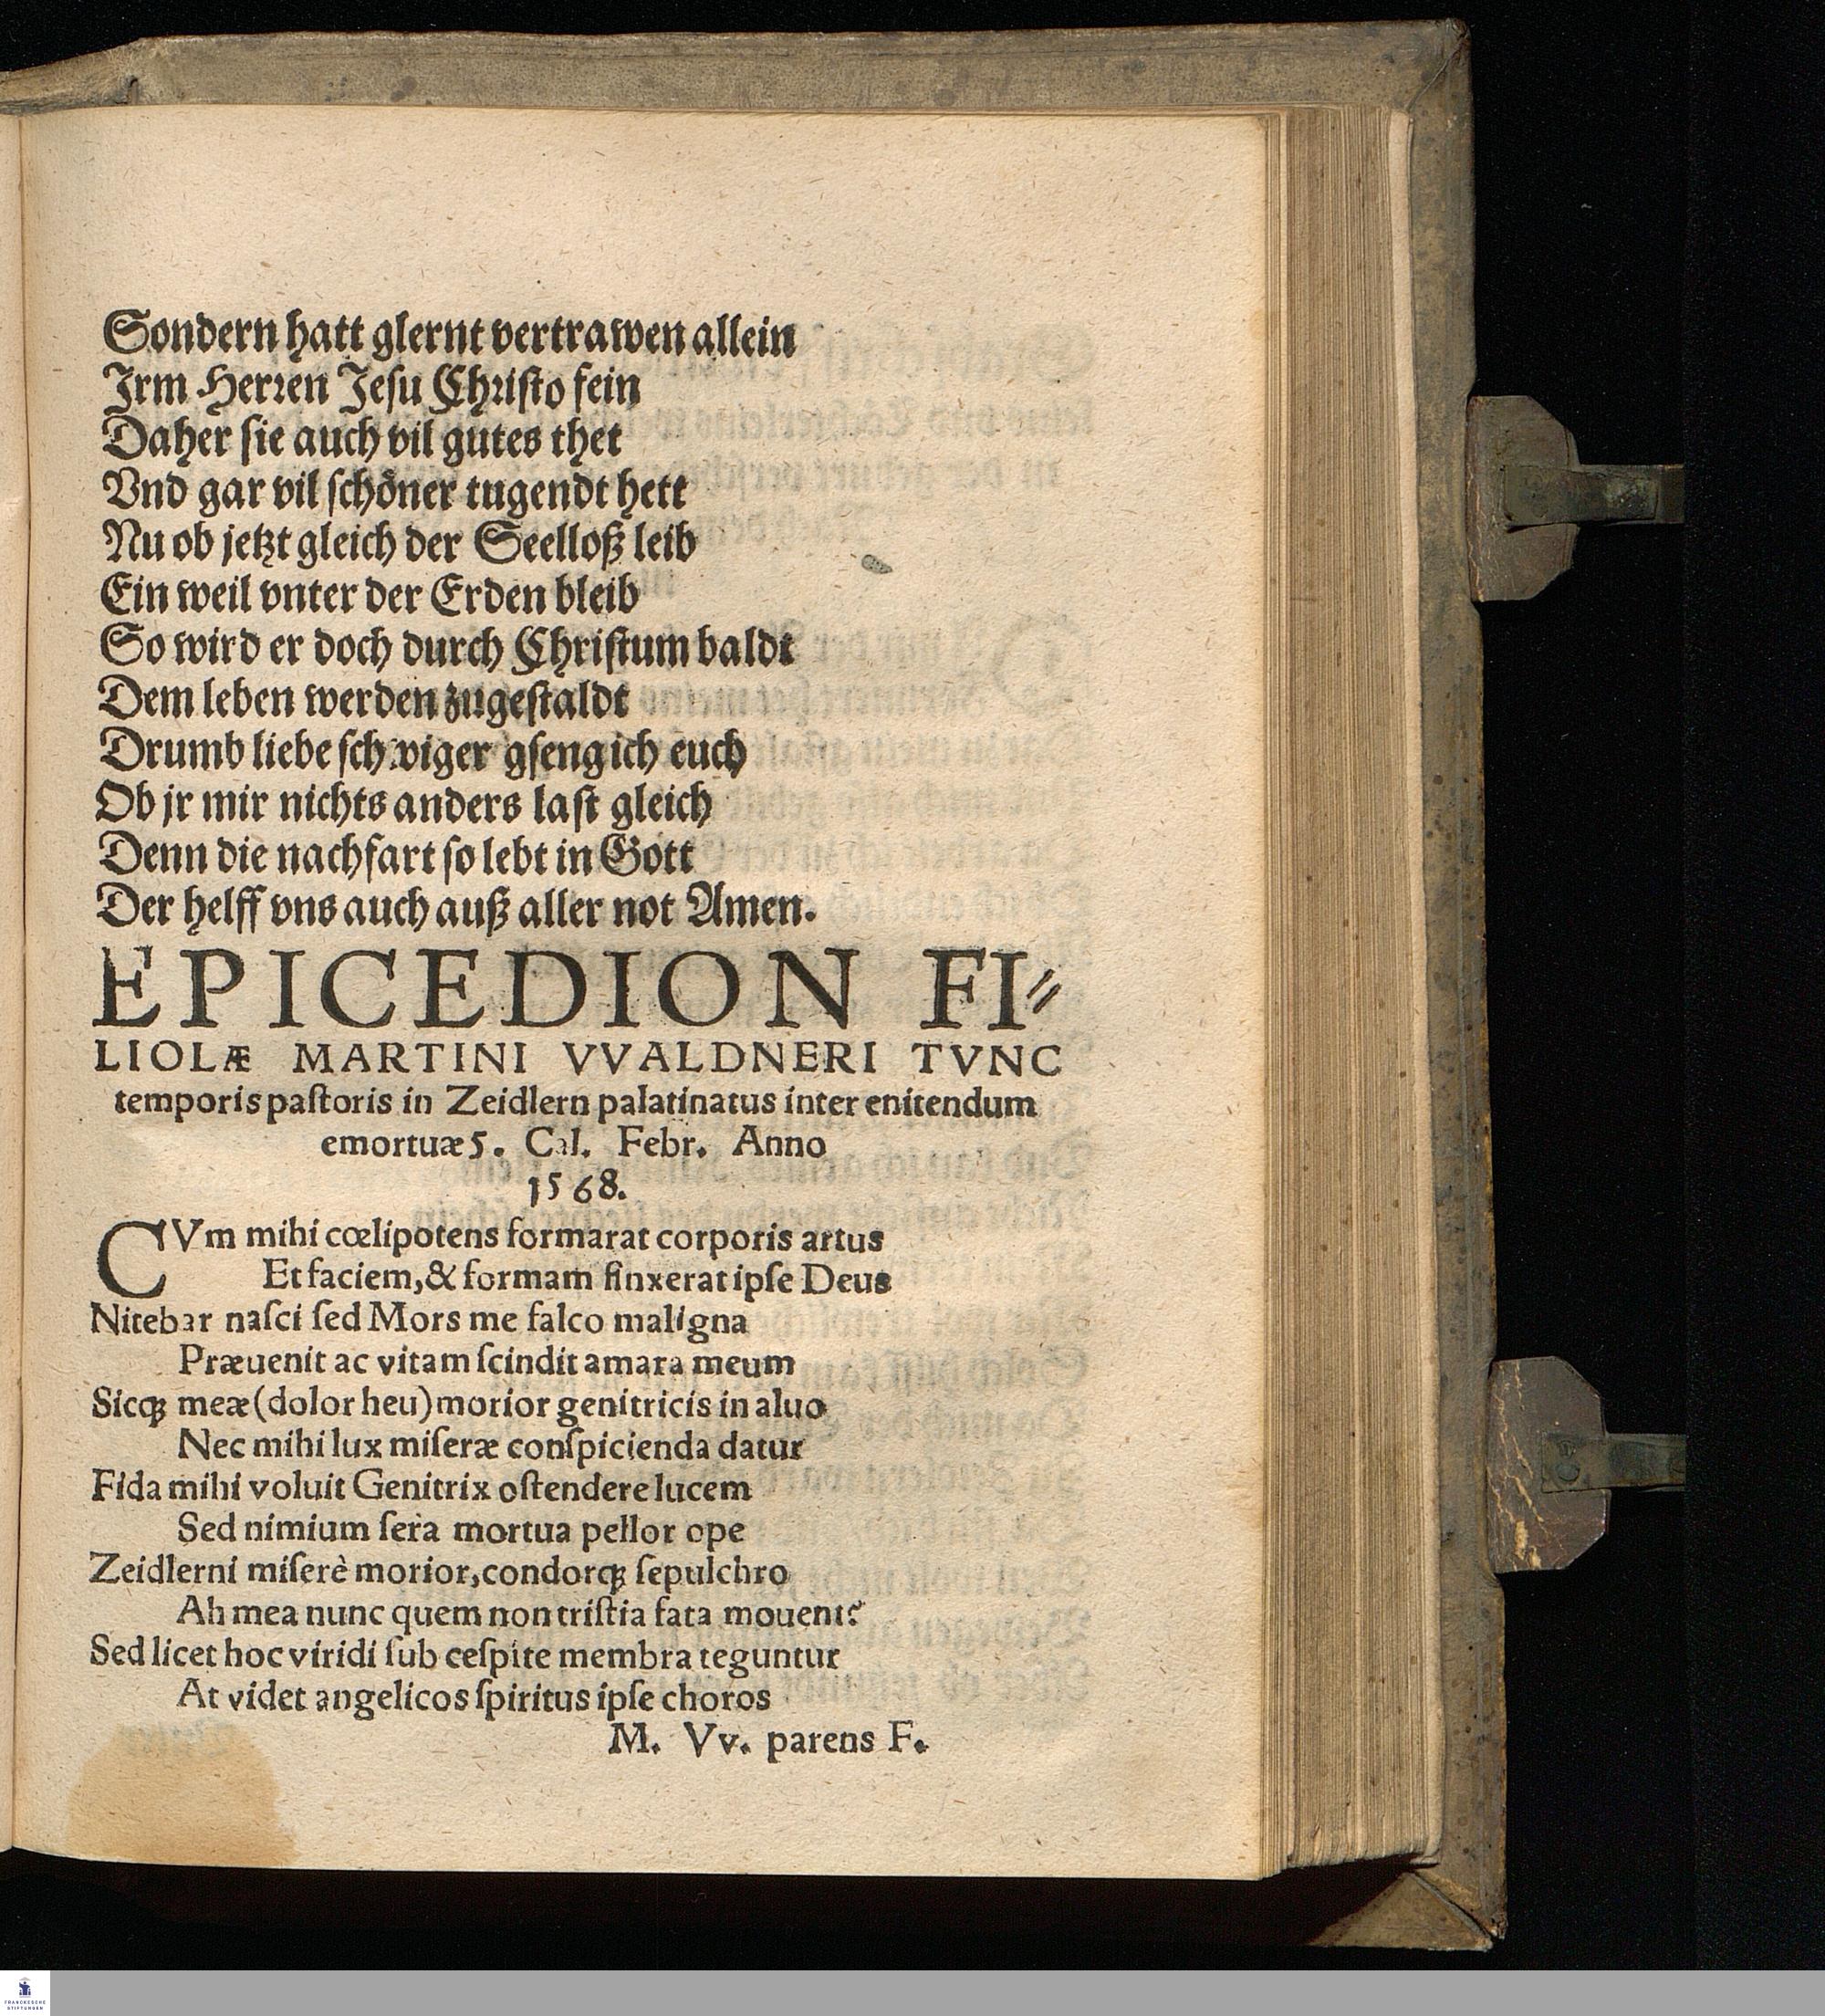 Sondern hatt glernt vertrawen allein
Irm Herren Jesu Christo fein
Daher sie auch vil gutes thet
Vnd gar vil schöner tugendt hett
Nu ob jetzt gleich der Seelloß leib
Ein weil vnter der Erden bleib
So wird er doch durch Christum baldt
Dem leben werden zugestaldt
Drumb liebe schwiger gseng ich euch
Ob jr mir nichts anders last gleich
Denn die nachfart so lebt in Gott
Der helff vns auch auß aller not Amen.
EPICEDION FI⸗
LIOLÆ MARTINI VVALDNERI TVNC
temporis paſtoris in Zeidlern palatinatus inter enitendum
emortuæ 5. Cal. Febr. Anno
1568.
CVm mihi cœlipotens formarat corporis artus
Et faciem, & formam finxerat ipſe Deus
Nitebar naſci ſed Mors me falco maligna
Præuenit ac vitam ſcindit amara meum
Sicꝗ; meæ (dolor heu) morior genitricis in aluo
Nec mihi lux miſeræ conſpicienda datur
Fida mihi voluit Genitrix oſtendere lucem
Sed nimium ſera mortua pellor ope
Zeidlerni miſerè morior, condorꝗ; ſepulchro
Ah mea nunc quem non triſtia fata mouent?
Sed licet hoc viridi ſub ceſpite membra teguntur
At videt angelicos ſpiritus ipſe choros
M. Vv. parens F.
FRANCKESCHE
STIFTUNGEN